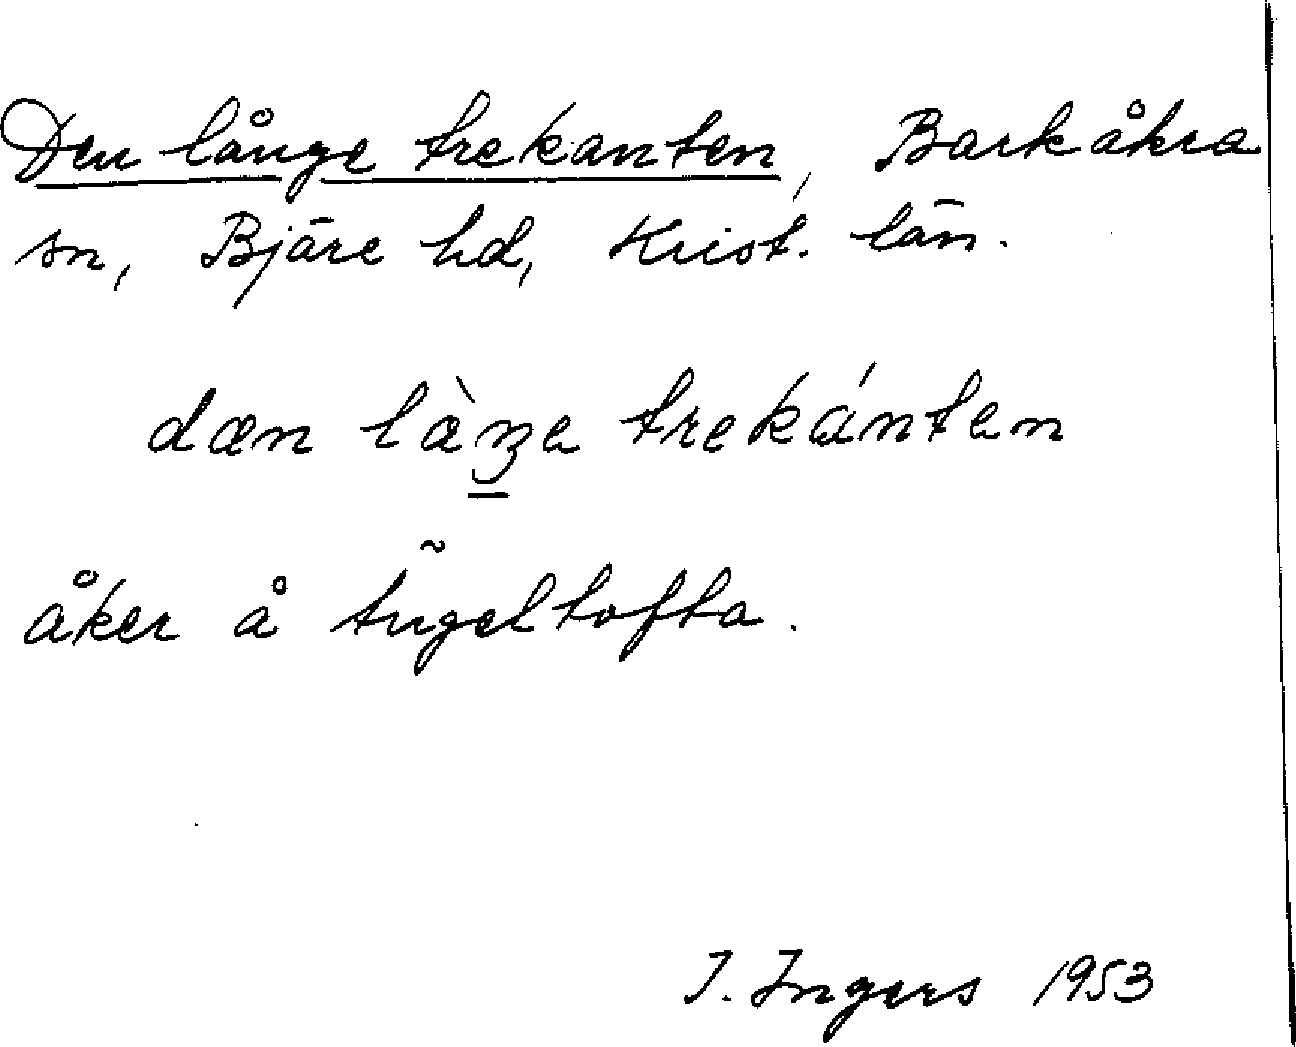 Den långe trekanten, Barkåkra
sn, Bjäre hd, Krist. län.
dæn làŋa trekántan
åker å Ängeltofta.
I. Ingers 1953